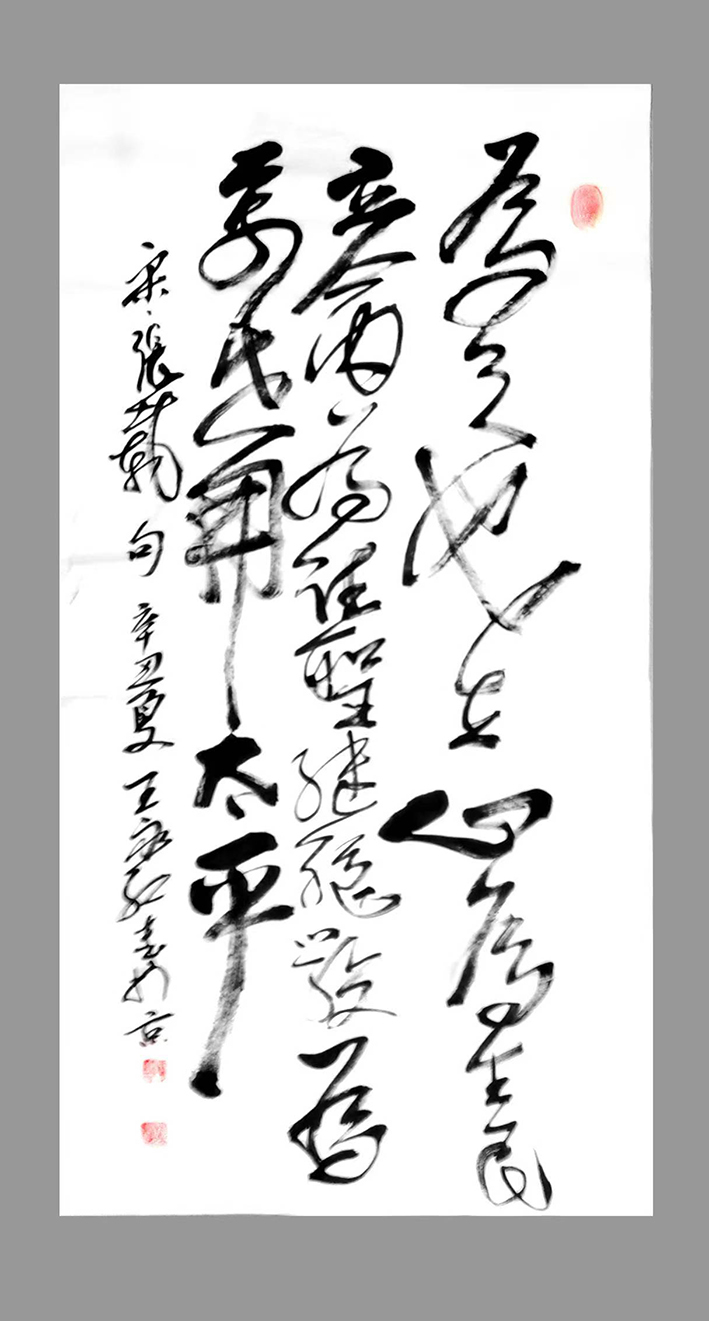 為天地立心為生民
立命為往聖繼絕學為
萬世開太平
宋張載句辛丑夏王永紅書於京